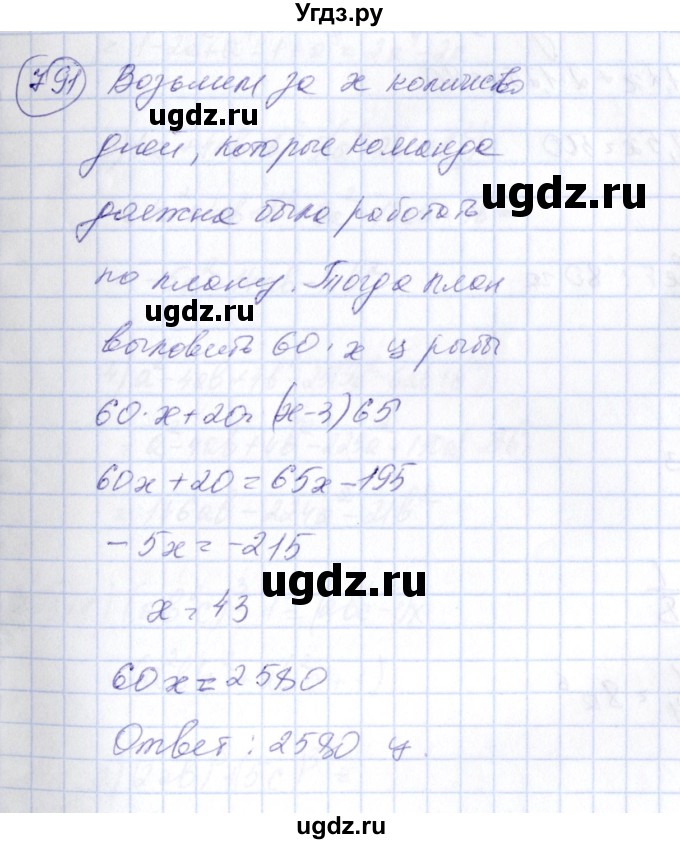 Угдз.ру
791 Возьмем за x количество
ugdz.ru
дней, которые команда
ugdz.ru
должна была работать
по плану. Тогда план
ugdz.ru
выловить 60 · x ц рыбы
60 · x + 20 = (x - 3) 65
ugdz.ru
60x + 20 = 65x - 195
- 5x = - 215
ugdz.ru
x = 43
60x = 2580
Ответ: 2580 ц.
ugdz.ru
ugdz.ru